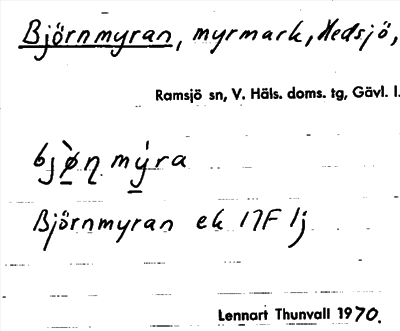 Björnmyran, myrmark, Hedsjö,
Ramsjö sn, V. Häls. doms. tg, Gävl. l.
bjø̀ɳ mýra
Björnmyran ek 17F 1j
Lennart Thunvall 1970.